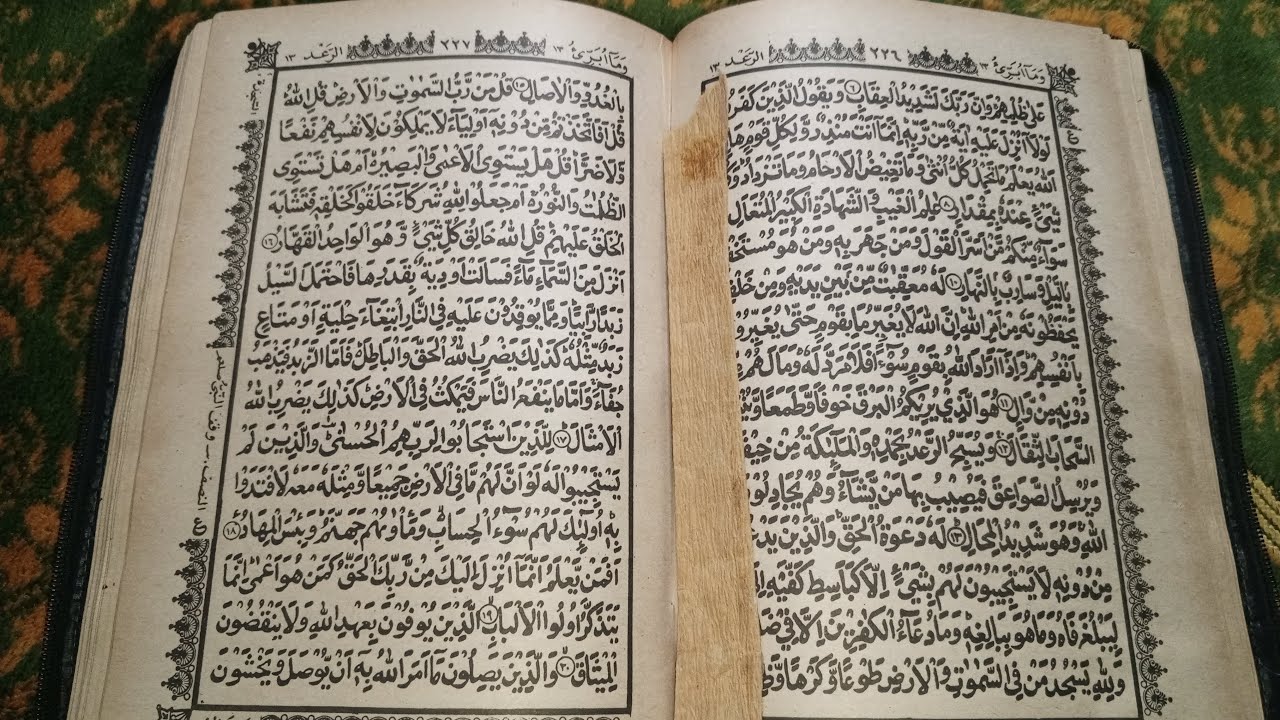 وَمَآ اُبَرِّئُ ١٣ ٢٢٦ الرَّعْد ١٣
عَلٰى ظُلْمِهِمْ وَاِنَّ رَبَّكَ لَشَدِيْدُ الْعِقَابِ ۶ وَيَقُوْلُ الَّذِيْنَ كَفَرُ
لَوْلَاۤ اُنْزِلَ عَلَيْهِ اٰيَةٌ مِّنْ رَّبِّهٖ اِنَّمَاۤ اَنْتَ مُنْذِرٌ وَّلِكُلِّ قَوْمٍ هَا
اَللّٰهُ يَعْلَمُ مَا تَحْمِلُ كُلُّ اُنْثٰى وَمَا تَغِيْضُ الْاَرْحَامُ وَمَا تَزْدَادُ وَ
شَيْءٍ عِنْدَهٗ بِمِقْدَارٍ ۸ عٰلِمُ الْغَيْبِ وَالشَّهَادَةِ الْكَبِيْرُ الْمُتَعَالِ
سَوَآءٌ مِّنْكُمْ مَّنْ اَسَرَّ الْقَوْلَ وَمَنْ جَهَرَ بِهٖ وَمَنْ هُوَ مُسْتَخْ
بِالَّيْلِ وَسَارِبٌۢ بِالنَّهَارِ ١٠ لَهٗ مُعَقِّبٰتٌ مِّنْۢ بَيْنِ يَدَيْهِ وَمِنْ خَلْ
يَحْفَظُوْنَهٗ مِنْ اَمْرِ اللّٰهِ اِنَّ اللّٰهَ لَا يُغَيِّرُ مَا بِقَوْمٍ حَتّٰى يُغَيِّرُوْ
بِاَنْفُسِهِمْ وَاِذَاۤ اَرَادَ اللّٰهُ بِقَوْمٍ سُوْۤءًا فَلَا مَرَدَّ لَهٗ وَمَا لَهُمْ مِّ
دُوْنِهٖ مِنْ وَّالٍ ١١ هُوَ الَّذِيْ يُرِيْكُمُ الْبَرْقَ خَوْفًا وَّطَمَعًا وَّيُ
السَّحَابَ الثِّقَالَ ١٢ وَيُسَبِّحُ الرَّعْدُ بِحَمْدِهٖ وَالْمَلٰٓئِكَةُ مِنْ خِيْفَ
وَيُرْسِلُ الصَّوَاعِقَ فَيُصِيْبُ بِهَا مَنْ يَّشَآءُ وَهُمْ يُجَادِلُوْ
اللّٰهِ وَهُوَ شَدِيْدُ الْمِحَالِ ١٣ لَهٗ دَعْوَةُ الْحَقِّ وَالَّذِيْنَ يَدْعُ
مِنْ دُوْنِهٖ لَا يَسْتَجِيْبُوْنَ لَهُمْ بِشَيْءٍ اِلَّا كَبَاسِطِ كَفَّيْهِ اِلَ
لِيَبْلُغَ فَاهُ وَمَا هُوَ بِبَالِغِهٖ وَمَا دُعَآءُ الْكٰفِرِيْنَ اِلَّا فِيْ ضَلٰ
وَلِلّٰهِ يَسْجُدُ مَنْ فِى السَّمٰوٰتِ وَالْاَرْضِ طَوْعًا وَّكَرْهًا وَّظِ
وَمَآ اُبَرِّئُ ١٣ ٢٢٧ الرَّعْد ١٣
بِالْغُدُوِّ وَالْاٰصَالِ ١٥ قُلْ مَنْ رَّبُّ السَّمٰوٰتِ وَالْاَرْضِ قُلِ اللّٰهُ
قُلْ اَفَاتَّخَذْتُمْ مِّنْ دُوْنِهٖۤ اَوْلِيَآءَ لَا يَمْلِكُوْنَ لِاَنْفُسِهِمْ نَفْعًا
وَّلَا ضَرًّا قُلْ هَلْ يَسْتَوِى الْاَعْمٰى وَالْبَصِيْرُ اَمْ هَلْ تَسْتَوِى
الظُّلُمٰتُ وَالنُّوْرُ اَمْ جَعَلُوْا لِلّٰهِ شُرَكَآءَ خَلَقُوْا كَخَلْقِهٖ فَتَشَابَهَ
الْخَلْقُ عَلَيْهِمْ قُلِ اللّٰهُ خَالِقُ كُلِّ شَيْءٍ وَّهُوَ الْوَاحِدُ الْقَهَّارُ ١٦
اَنْزَلَ مِنَ السَّمَآءِ مَآءً فَسَالَتْ اَوْدِيَةٌۢ بِقَدَرِهَا فَاحْتَمَلَ السَّيْلُ
زَبَدًا رَّابِيًا وَمِمَّا يُوْقِدُوْنَ عَلَيْهِ فِى النَّارِ ابْتِغَآءَ حِلْيَةٍ اَوْ مَتَاعٍ
زَبَدٌ مِّثْلُهٗ كَذٰلِكَ يَضْرِبُ اللّٰهُ الْحَقَّ وَالْبَاطِلَ فَاَمَّا الزَّبَدُ فَيَذْهَبُ
جُفَآءً وَاَمَّا مَا يَنْفَعُ النَّاسَ فَيَمْكُثُ فِى الْاَرْضِ كَذٰلِكَ يَضْرِبُ اللّٰهُ
الْاَمْثَالَ ١٧ لِلَّذِيْنَ اسْتَجَابُوْا لِرَبِّهِمُ الْحُسْنٰى وَالَّذِيْنَ لَمْ
يَسْتَجِيْبُوْا لَهٗ لَوْ اَنَّ لَهُمْ مَّا فِى الْاَرْضِ جَمِيْعًا وَّمِثْلَهٗ مَعَهٗ لَافْتَدَوْا
بِهٖ اُولٰٓئِكَ لَهُمْ سُوْٓءُ الْحِسَابِ وَمَاْوٰىهُمْ جَهَنَّمُ وَبِئْسَ الْمِهَادُ ١٨
اَفَمَنْ يَّعْلَمُ اَنَّمَاۤ اُنْزِلَ اِلَيْكَ مِنْ رَّبِّكَ الْحَقُّ كَمَنْ هُوَ اَعْمٰى اِنَّمَا
يَتَذَكَّرُ اُولُوا الْاَلْبَابِ ١٩ الَّذِيْنَ يُوْفُوْنَ بِعَهْدِ اللّٰهِ وَلَا يَنْقُضُوْنَ
الْمِيْثَاقَ ٢٠ وَالَّذِيْنَ يَصِلُوْنَ مَاۤ اَمَرَ اللّٰهُ بِهٖۤ اَنْ يُّوْصَلَ وَيَخْشَوْنَ
النصف